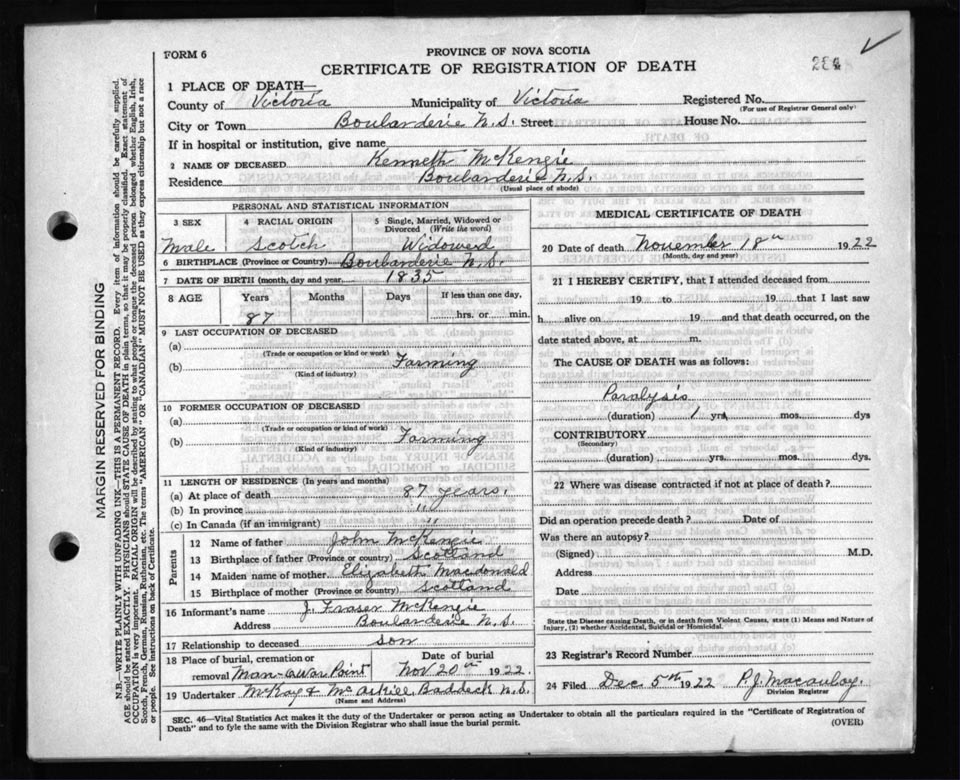 FORM 6
PROVINCE OF NOVA SCOTIA
CERTIFICATE OF REGISTRATION OF DEATH
284
1 PLACE OF DEATH—
County of Victoria Municipality of Victoria Registered No.
(For use of Registrar General only)
City or Town Boularderie N.S. Street House No.
If in hospital or institution, give name
2 NAME OF DECEASED Kenneth McKenzie
Residence Boularderie N.S.
(Usual place of abode)
PERSONAL AND STATISTICAL INFORMATION
3 SEX 4 RACIAL ORIGIN 5 Single, Married, Widowed or Divorced (Write the word)
Male Scotch Widowed
6 BIRTHPLACE (Province or Country) Boularderie N.S.
7 DATE OF BIRTH (month, day and year) 1835
8 AGE Years Months Days If less than one day,
87 hrs. or min.
9 LAST OCCUPATION OF DECEASED
(a)
(Trade or occupation or kind or work)
(b) Farming
(Kind of industry)
10 FORMER OCCUPATION OF DECEASED
(a)
(Trade or occupation or kind of work)
(b) Farming
(Kind of industry)
11 LENGTH OF RESIDENCE (In years and months)
(a) At place of death 87 years.
(b) In province "
(c) In Canada (if an immigrant) "
Parents
12 Name of father John McKenzie
13 Birthplace of father (Province or country) Scotland
14 Maiden name of mother Elizabeth Macdonald
15 Birthplace of mother (Province or country) Scotland
16 Informant's name J. Fraser McKenzie
Address Boularderie N.S.
17 Relationship to deceased son
18 Place of burial, cremation or removal Man-a-War Point Date of burial Nov 20th 1922
19 Undertaker McKay & McAskill Baddeck N.S.
(Name and Address)
MEDICAL CERTIFICATE OF DEATH
20 Date of death November 18th 1922
(Month, day and year)
21 I HEREBY CERTIFY, that I attended deceased from
19 to 19 that I last saw
h alive on 19 and that death occurred, on the
date stated above, at m.
The CAUSE OF DEATH was as follows:
Paralysis
(duration) 1 yrs. mos. dys
CONTRIBUTORY
(Secondary)
(duration) yrs. mos. dys.
22 Where was disease contracted if not at place of death?
Did an operation precede death? Date of
Was there an autopsy?
(Signed) M.D.
Address
Date
State the Disease causing Death, or in death from Violent Causes, state (1) Means and Nature of
Injury, (2) whether Accidental, Suicidal or Homicidal.
23 Registrar's Record Number
24 Filed Dec 5th 1922 P.J. Macaulay.
Division Registrar
SEC. 46—Vital Statistics Act makes it the duty of the Undertaker or person acting as Undertaker to obtain all the particulars required in the "Certificate of Registration of
Death" and to fyle the same with the Division Registrar who shall issue the burial permit.
(OVER)
MARGIN RESERVED FOR BINDING
N.B.—WRITE PLAINLY WITH UNFADING INK—THIS IS A PERMANENT RECORD. Every item of information should be carefully supplied.
AGE should be stated EXACTLY. PHYSICIANS should STATE CAUSE OF DEATH in plain terms, so that it may be properly classified. Exact statement of
OCCUPATION is very important. RACIAL ORIGIN will be described by stating to what people or tongue the deceased person belonged whether English, Irish,
Scotch, French, German, Russian, Ruthenian, etc. The terms "AMERICAN" OR "CANADIAN" MUST NOT BE USED as they express citizenship but not a race
or people. See instructions on back of Certificate.